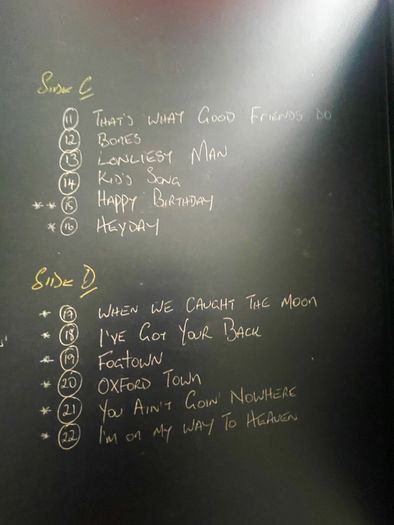 Side C
11 That's What Good Friends Do
12 Bones
13 Lonliest Man
14 Kid's Song
** 15 Happy Birthday
* 16 Heyday
Side D
* 17 When We Caught The Moon
* 18 I've Got Your Back
* 19 Fogtown
* 20 Oxford Town
* 21 You Ain't Goin' Nowhere
* 22 I'm on my Way To Heaven